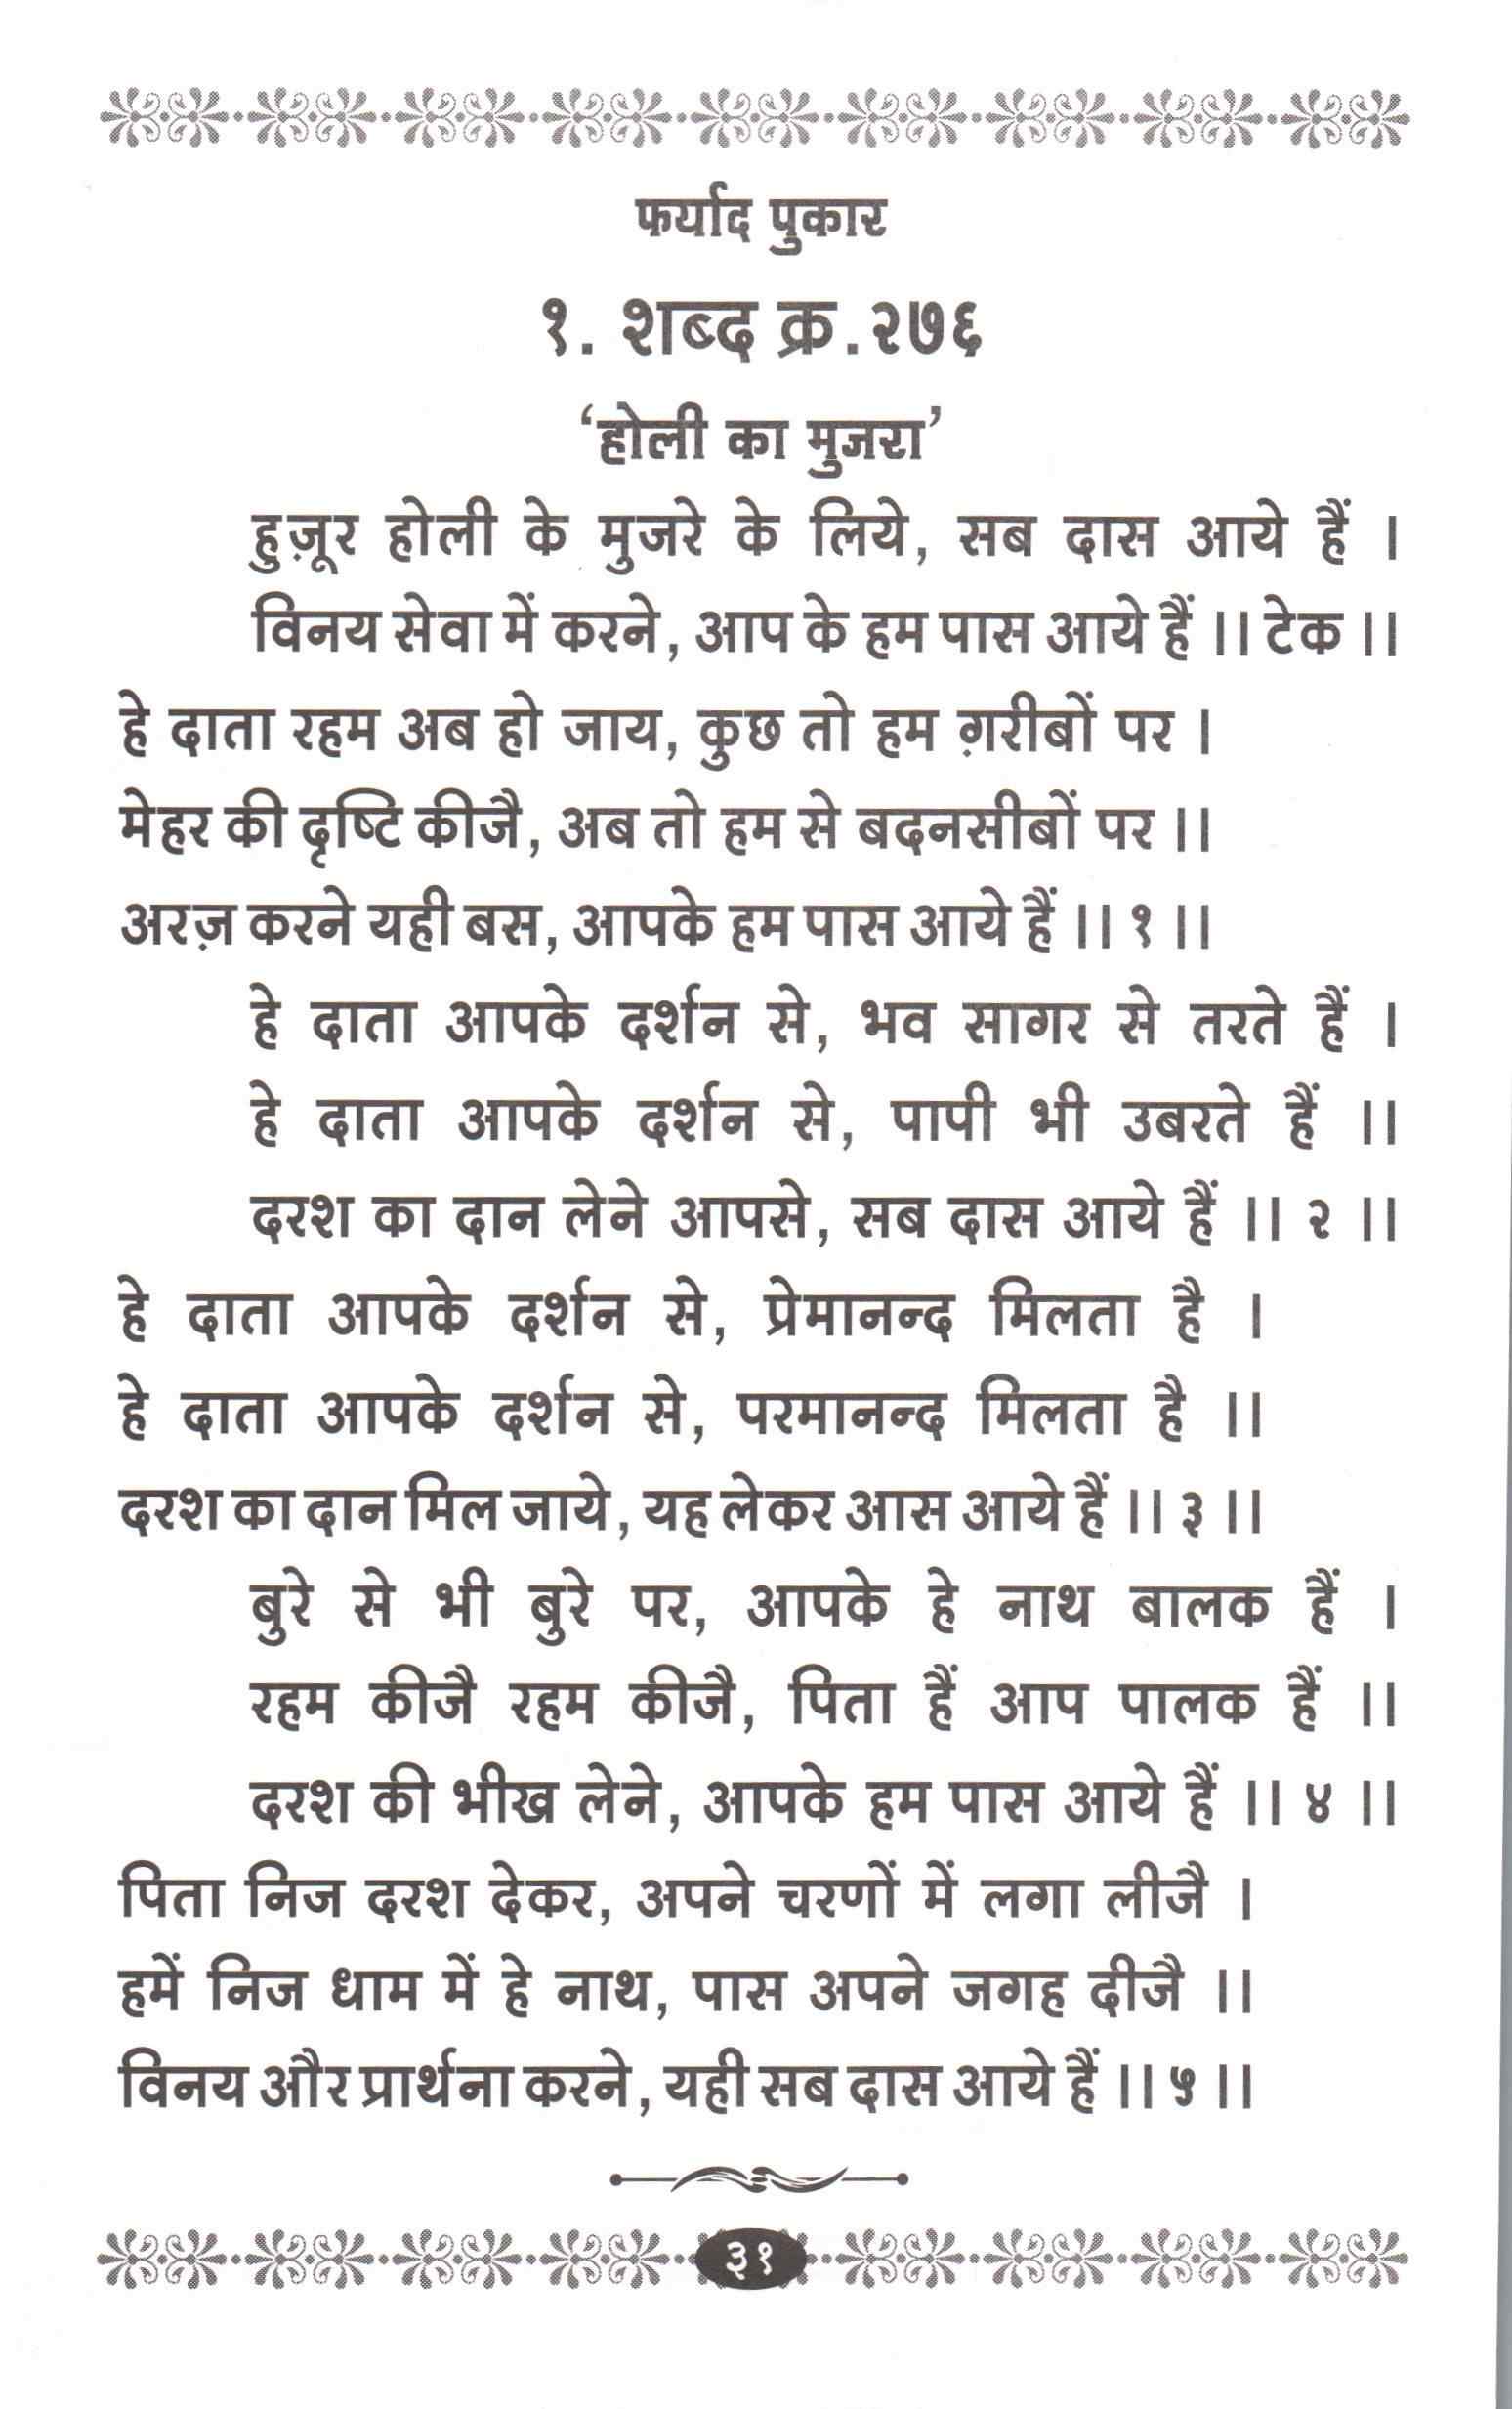 फर्याद पुकार
१. शब्द क्र.२७६
‘होली का मुजरा’
हुज़ूर होली के मुजरे के लिये, सब दास आये हैं ।
विनय सेवा में करने, आप के हम पास आये हैं ।। टेक ।।
हे दाता रहम अब हो जाय, कुछ तो हम ग़रीबों पर ।
मेहर की दृष्टि कीजै, अब तो हम से बदनसीबों पर ।।
अरज़ करने यही बस, आपके हम पास आये हैं ।। १ ।।
हे दाता आपके दर्शन से, भव सागर से तरते हैं ।
हे दाता आपके दर्शन से, पापी भी उबरते हैं ।।
दरश का दान लेने आपसे, सब दास आये हैं ।। २ ।।
हे दाता आपके दर्शन से, प्रेमानन्द मिलता है ।
हे दाता आपके दर्शन से, परमानन्द मिलता है ।।
दरश का दान मिल जाये, यह लेकर आस आये हैं ।। ३ ।।
बुरे से भी बुरे पर, आपके हे नाथ बालक हैं ।
रहम कीजै रहम कीजै, पिता हैं आप पालक हैं ।।
दरश की भीख लेने, आपके हम पास आये हैं ।। ४ ।।
पिता निज दरश देकर, अपने चरणों में लगा लीजै ।
हमें निज धाम में हे नाथ, पास अपने जगह दीजै ।।
विनय और प्रार्थना करने, यही सब दास आये हैं ।। ५ ।।
३१